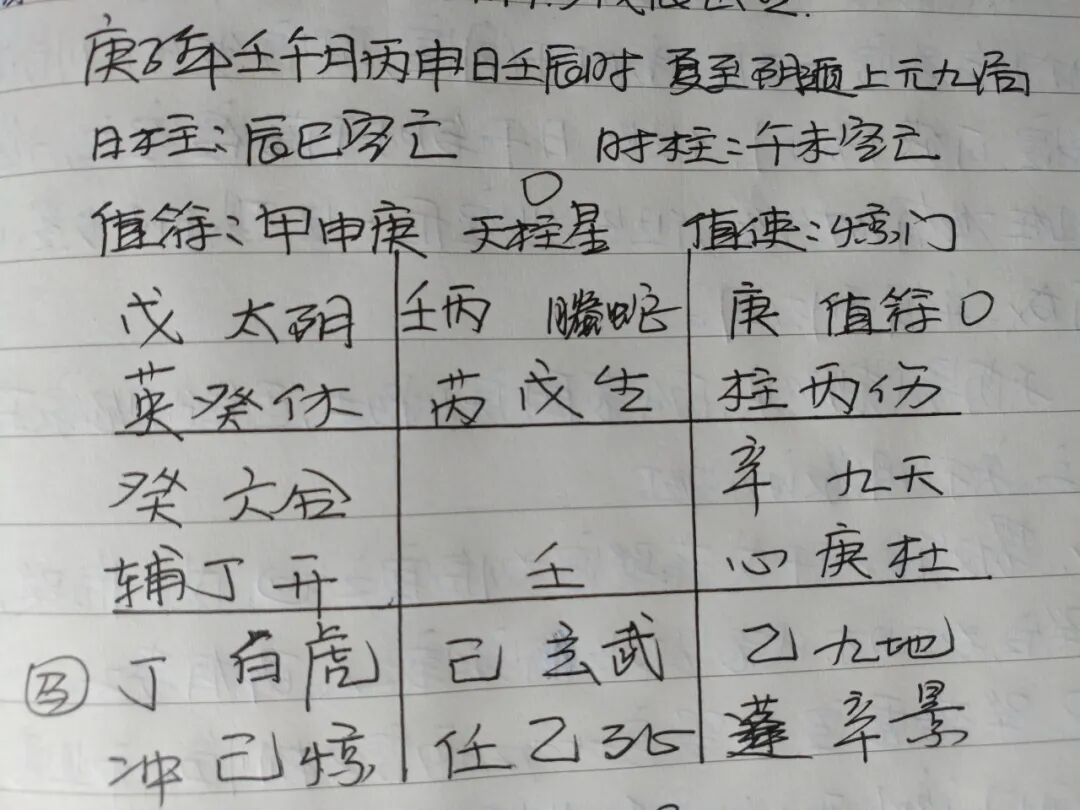 庚子年壬午月丙申日壬辰时 夏至阴遁上元九局
日柱:辰巳空亡 时柱:午未空亡
O
值符:甲申庚 天柱星 值使:惊门
戊 太阴 壬丙 螣蛇 庚 值符 O
英癸休 芮戊生 柱丙伤
癸 六合 辛 九天
辅丁开 壬 心庚杜
马 丁 白虎 己 玄武 乙九地
冲己惊 任乙死 蓬辛景